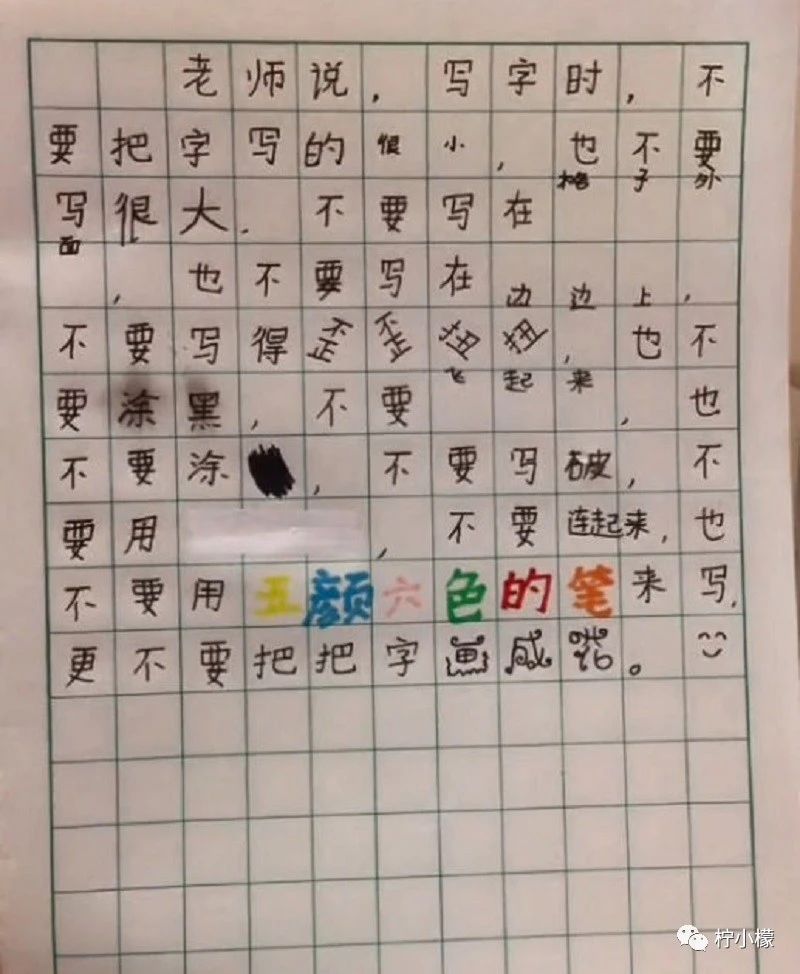 老师说，写字时，不
要把字写的很小，也不要
写很大，不要写在格子外
面，也不要写在边边上，
不要写得歪歪扭扭，也不
要涂黑，不要飞起来，也
不要涂，不要写破，不
要用，不要连起来，也
不要用五颜六色的笔来写，
更不要把把字画成花。
柠小檬